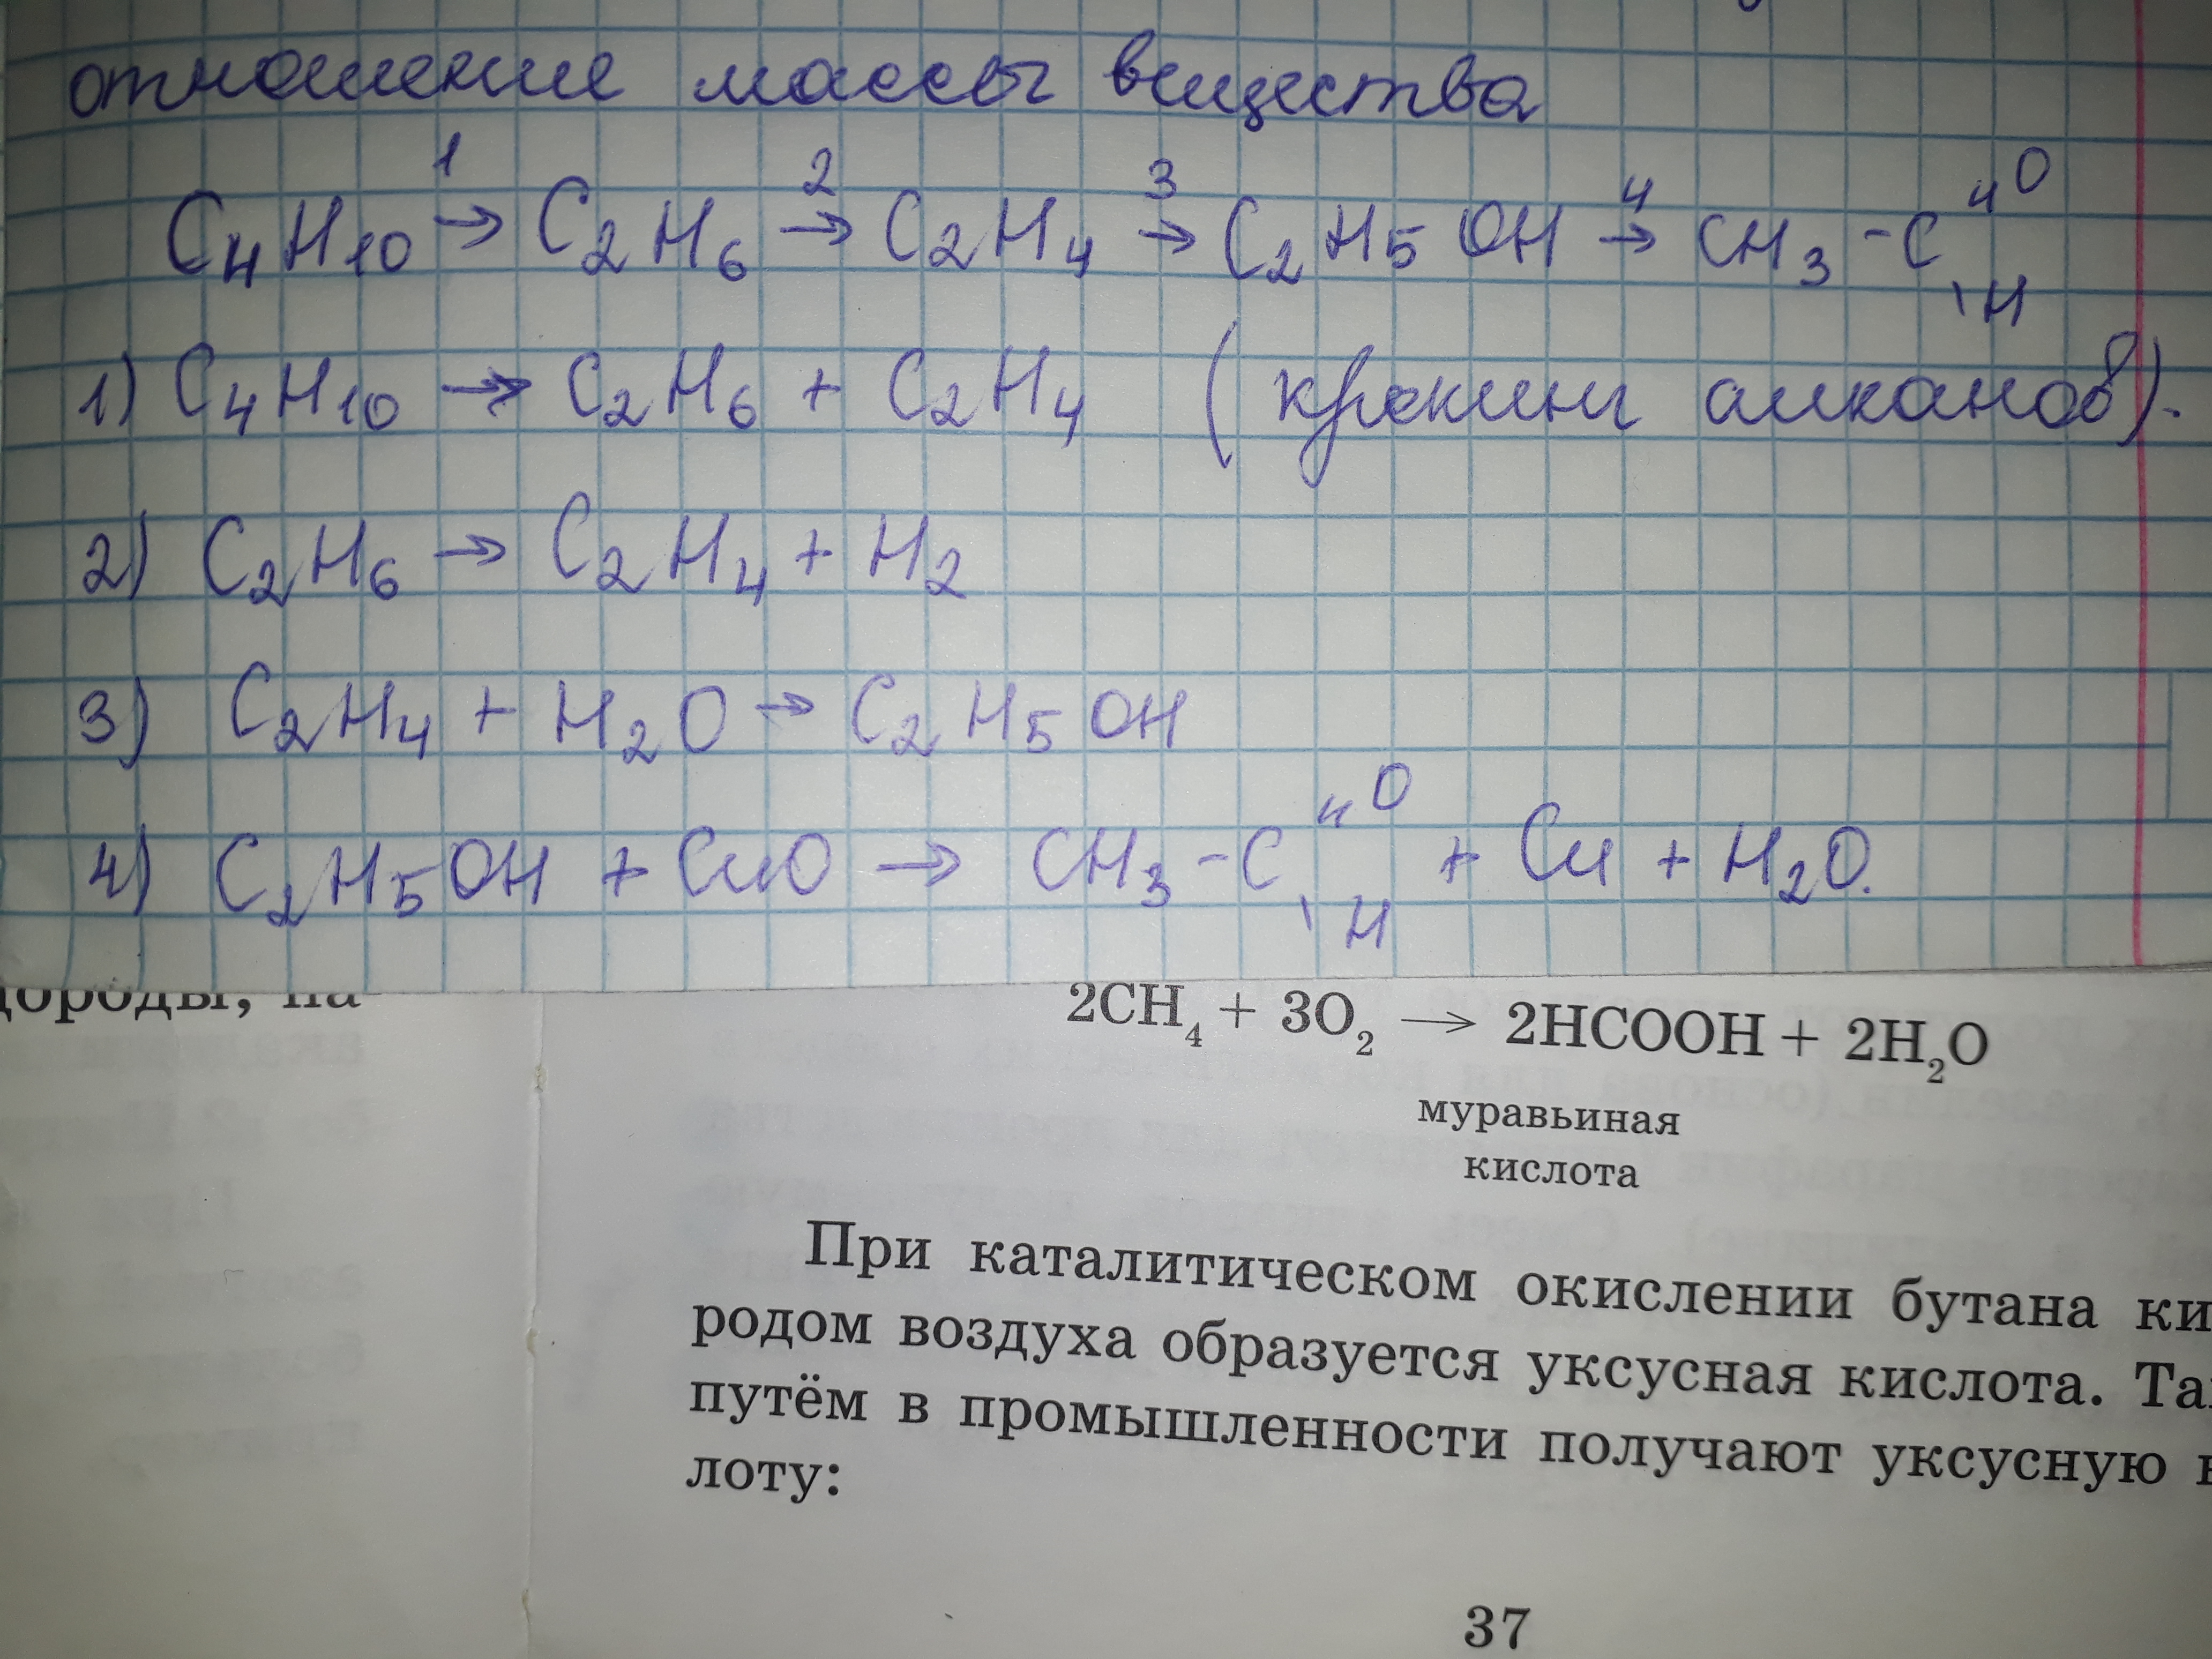 отношение массы вещества
C₄H₁₀ →¹ C₂H₆ →² C₂H₄ →³ C₂H₅OH →⁴ CH₃-C〃O \H
1) C₄H₁₀ → C₂H₆ + C₂H₄ (крекинг алканов).
2) C₂H₆ → C₂H₄ + H₂
3) C₂H₄ + H₂O → C₂H₅OH
4) C₂H₅OH + CuO → CH₃-C〃O \H + Cu + H₂O.
дороды, на
2CH₄ + 3O₂ → 2HCOOH + 2H₂O
муравьиная
кислота
При каталитическом окислении бутана ки
родом воздуха образуется уксусная кислота. Та
путём в промышленности получают уксусную к
лоту:
37